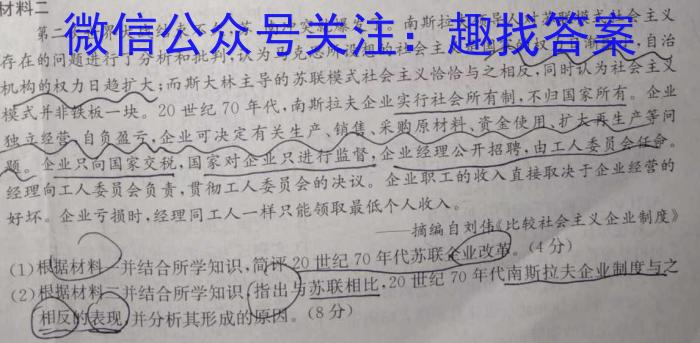 材料二
微信公众号关注：趣找答案
南斯拉
社会主义
存在的问题进行了分析和批判,认为马克思所设想的社会主
自治
机构的权力日趋扩大;而斯大林主导的苏联模式社会主义恰恰与之相反,同时认为社会主义
模式并非铁板一块。20世纪70年代,南斯拉夫企业实行社会所有制,不归国家所有。企业
独立经营、自负盈亏,企业可决定有关生产、销售、采购原材料、资金使用、扩大再生产等问
题。企业只向国家交税,国家对企业只进行监督;企业经理公开招聘,由工人委员会任命。
经理向工人委员会负责,贯彻工人委员会的决议。企业职工的收入直接取决于企业经营的
好坏。企业亏损时,经理同工人一样只能领取最低个人收入。
——摘编自刘伟《比较社会主义企业制度》
(1)根据材料一并结合所学知识,简评20世纪70年代苏联企业改革。(4分)
(2)根据材料二并结合所学知识,指出与苏联相比,20世纪70年代南斯拉夫企业制度与之
相反的表现,并分析其形成的原因。(8分)